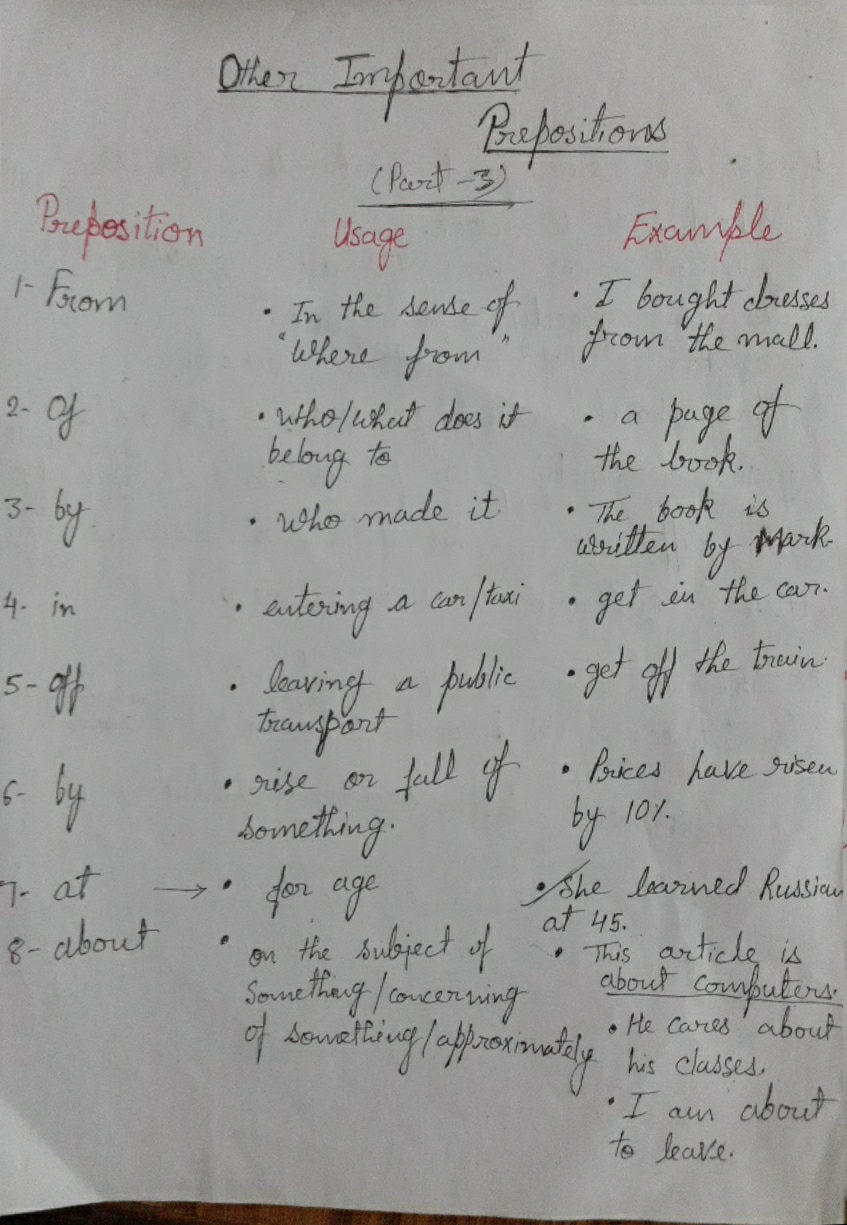 Other Important
Prepositions
(Part-3)
Preposition Usage Example
1- From • In the sense of • I bought dresses
"Where from" from the mall.
2- Of • who/what does it • a page of
belong to the book.
3- by • who made it • The book is
written by Mark.
4- in • entering a car/taxi • get in the car.
5- off • leaving a public • get off the train.
transport
6- by • rise or fall of • Prices have risen
something. by 10%.
7- at → • for age • She learned Russian
at 45.
8- about • on the subject of • This article is
something/concerning about computers.
of something/approximately • He cares about
his classes.
• I am about
to leave.